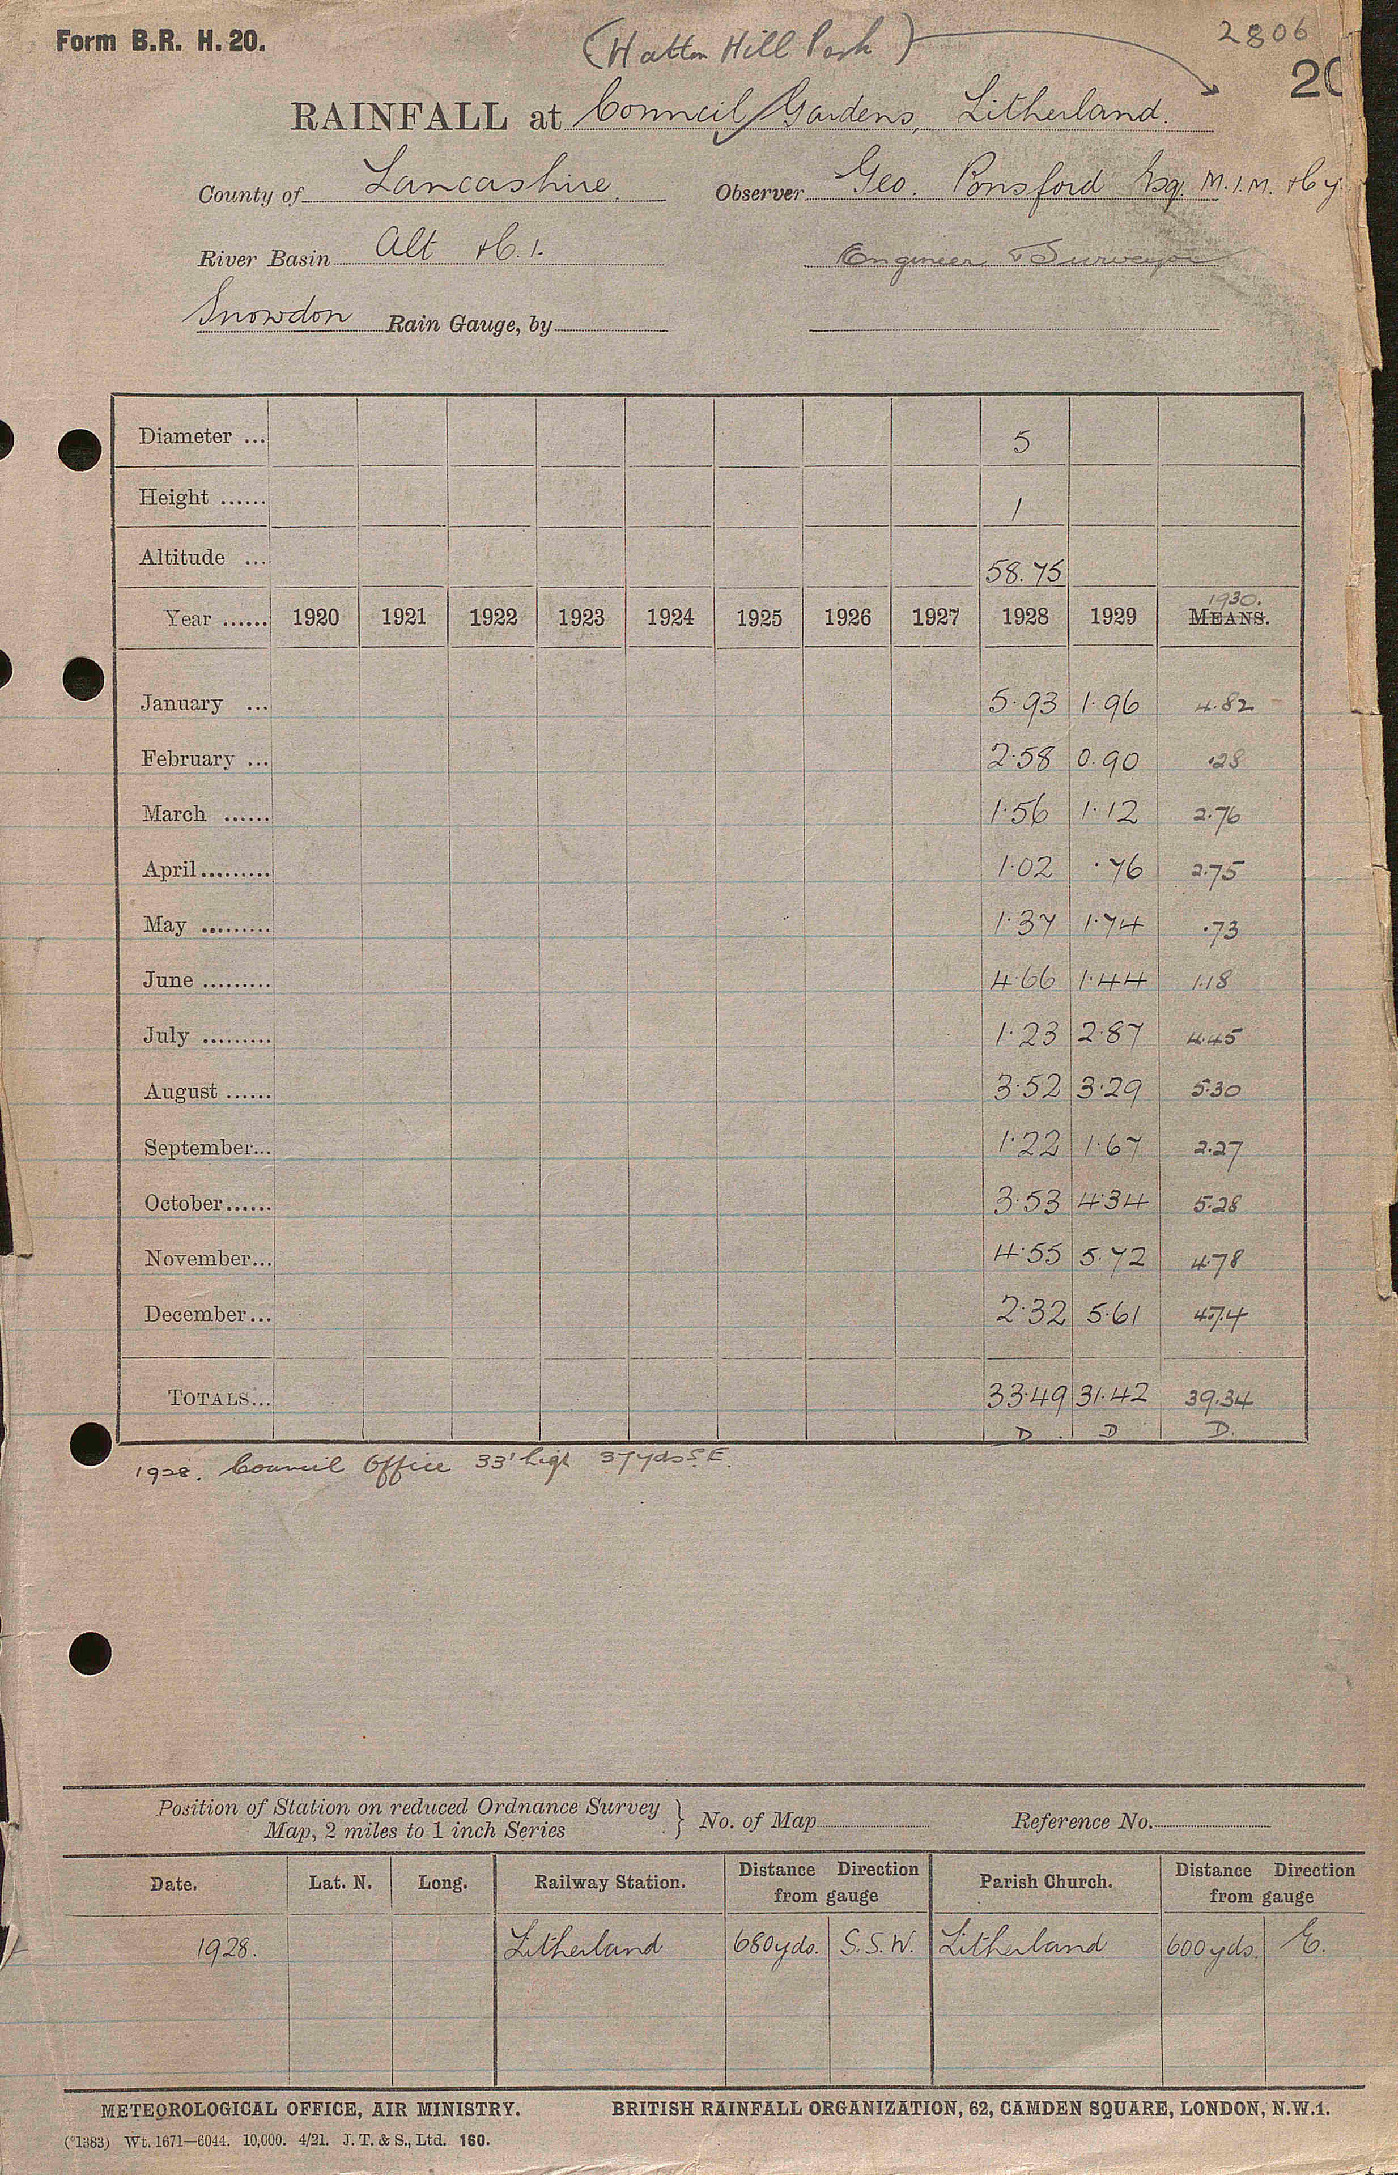 Form B.R. H. 20.
(Hatton Hill Park)
2806
20
RAINFALL at Council Gardens, Litherland.
County of Lancashire. Observer Geo. Ponsford Esq. M.I.M. & Cy
River Basin Alt &C. 1. Engineer & Surveyor
Snowdon Rain Gauge, by
Diameter ... 5
Height ...... 1
Altitude ... 58.75
Year ...... 1920 1921 1922 1923 1924 1925 1926 1927 1928 1929 1930. MEANS.
January ... 5.93 1.96 4.82
February ... 2.58 0.90 .28
March ...... 1.56 1.12 2.76
April ......... 1.02 .76 2.75
May ......... 1.37 1.74 .73
June ......... 4.66 1.44 1.18
July ......... 1.23 2.87 4.45
August ...... 3.52 3.29 5.30
September... 1.22 1.67 2.27
October...... 3.53 4.34 5.28
November... 4.55 5.72 4.78
December... 2.32 5.61 4.74
TOTALS... 33.49 31.42 39.34
D D D.
1928. Council Office 33' high 37yds S.E.
Position of Station on reduced Ordnance Survey
Map, 2 miles to 1 inch Series } No. of Map Reference No.
Date. Lat. N. Long. Railway Station. Distance Direction from gauge Parish Church. Distance Direction from gauge
1928. Litherland 680yds. S.S.W. Litherland 600yds. E.
METEOROLOGICAL OFFICE, AIR MINISTRY. BRITISH RAINFALL ORGANIZATION, 62, CAMDEN SQUARE, LONDON, N.W.1.
(*1383) Wt. 1671—6044. 10,000. 4/21. J. T. & S., Ltd. 160.